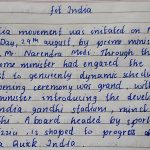 fit India
movement was initiated on N
Day, 29th august, by prime minist
Mr. Narendra Modi. Through th
me minister had engared the
st to genuinely dynamic schedu
pening ceremony was grand, with
minister introducing the develo
india gandhi stadium,
A board headed by sport
is shaped to progress o
Quick India.